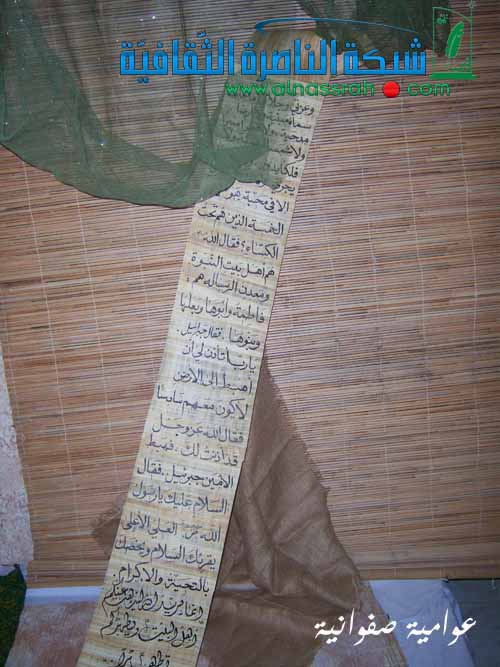 شبكة الناصرة الثقافية
www.alnassrah.com
وعزتي
ولا
فلكا
يجري
الا في محبة هو
الخمسة الذين هم تحت
الكساء؟ فقال الله
هم أهل بيت النبوة
ومعدن الرسالة هم
فاطمة وأبوها وبعلها
وبنوها. فقال جبرائيل.
يارب أتأذن لي أن
أهبط إلى الأرض
لأكون معهم سادسا
فقال الله عز وجل
قد أذنت لك. فهبط
الأمين جبرئيل. فقال
السلام عليك يا رسول
الله. العلي الأعلى
يقرئك السلام ويخصك
بالتحية والاكرام
إنما يريد الله ليذهب عنكم
أهل البيت ويطهركم
عوامية صفوانية